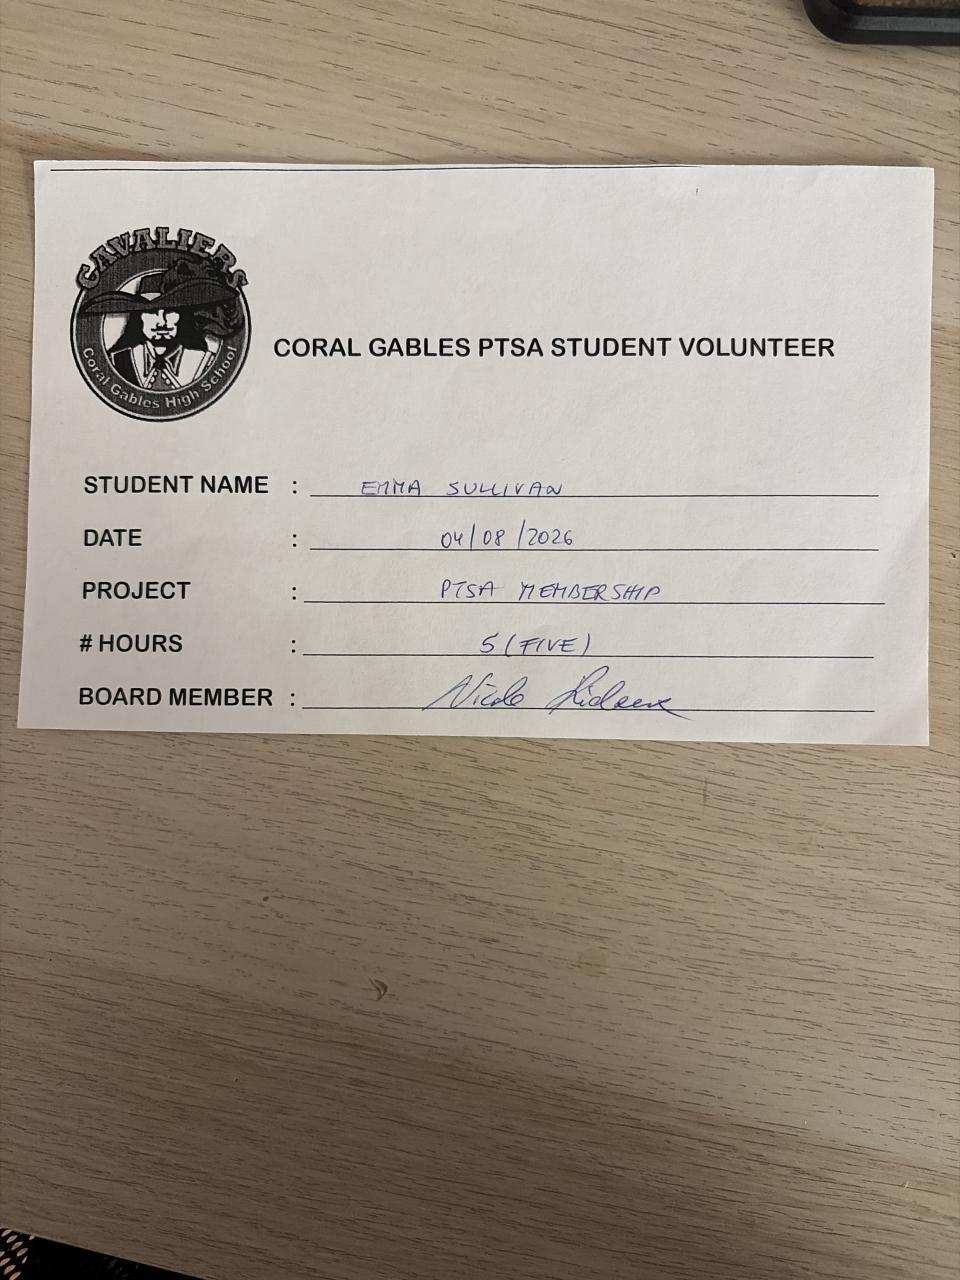 CAVALIERS
Coral Gables High School
CORAL GABLES PTSA STUDENT VOLUNTEER
STUDENT NAME : EMMA SULLIVAN
DATE : 04/08/2026
PROJECT : PTSA MEMBERSHIP
# HOURS : 5 (FIVE)
BOARD MEMBER : Nicole